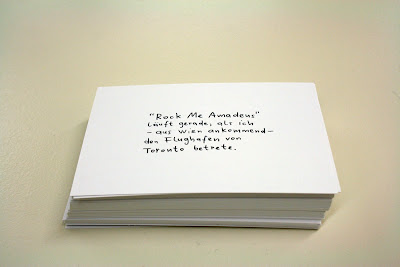 "Rock Me Amadeus"
läuft gerade, als ich
- aus Wien ankommend -
den Flughafen von
Toronto betrete.